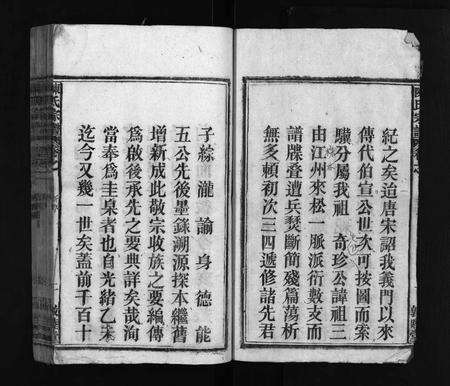 紀之矣迨唐宋詔我義門以來
傳代伯宣公世次可按圖而索
驥分屬我祖　奇珍公諱祖三
由江州來松一脈派衍數支而
譜牒疊遭兵燹斷簡殘篇萬析
無多賴初次三四遞修諸先君
子綜瀧諭身德能
五公先後墨銖溯源探本繼舊
增新成此敬宗收族之要編傳
爲啟後承先之要典詳矣哉洵
當奉爲圭臬者也自光緒乙未
迄今又幾一世矣蓋前千百十